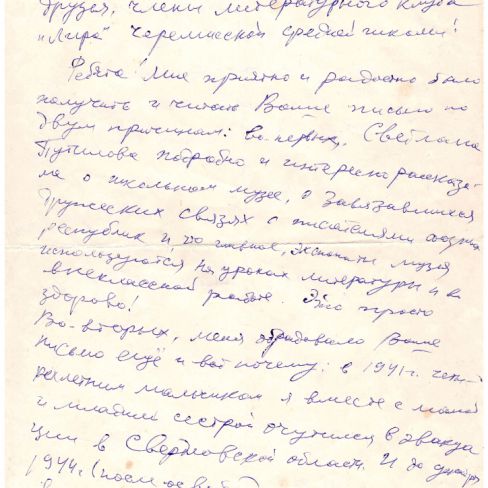 Друзья, члены литературного клуба
"Лира" Черемисской средней школы!
Ребята! Мне приятно и радостно было
получить и читать Ваше письмо по
двум причинам: во-первых, Светлана
Путилова подробно и интересно рассказа-
ла о школьном музее, о завязавшихся
дружеских связях с писателями союзных
республик и, что главное, экспонаты музея
используются на уроках литературы и в
внеклассной работе. Это просто
здорово!
Во-вторых, меня обрадовало Ваше
письмо ещё и вот почему: в 1941 г.
летним мальчиком я вместе с мамой
и младшей сестрой очутился в эвакуа-
ции в Свердловской области. И до
1944 г. (после